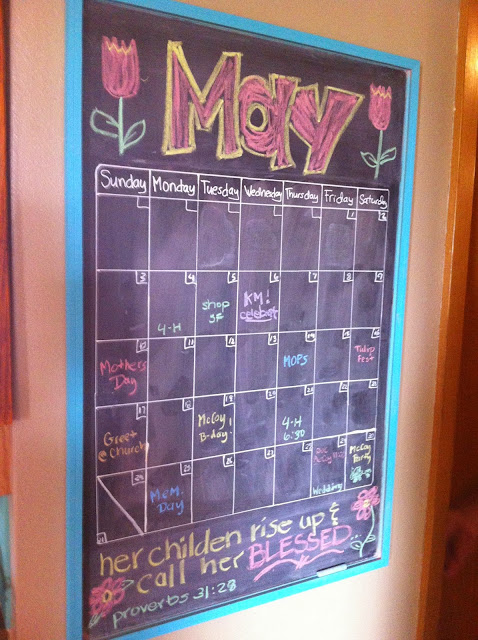 May
Sunday Monday Tuesday Wednesday Thursday Friday Saturday
1 2
3 4 5 6 7 8 9
4-H
shop
SF
KM!
celebrat
10 11 12 13 14 15 16
Mothers
Day
MOPS
Tulip
Fest
17 18 19 20 21 22 23
Greet
@Church
McCoy
B-day
4-H
6:30
24 25 26 27 28 29 30
31
Mem.
Day
Wedding
McCoy
Party
her childen rise up &
call her BLESSED...
proverbs 31:28